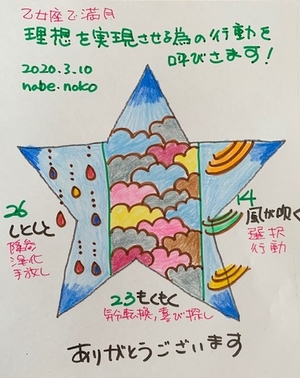 乙女座で満月
理想を実現させる為の行動を
呼びさます!
2020.3.10
nabe.noko
26
しとしと
浄化
手放し
14
風が吹く
選択
行動
23もくもく
気分転換,喜び探し
ありがとうございます